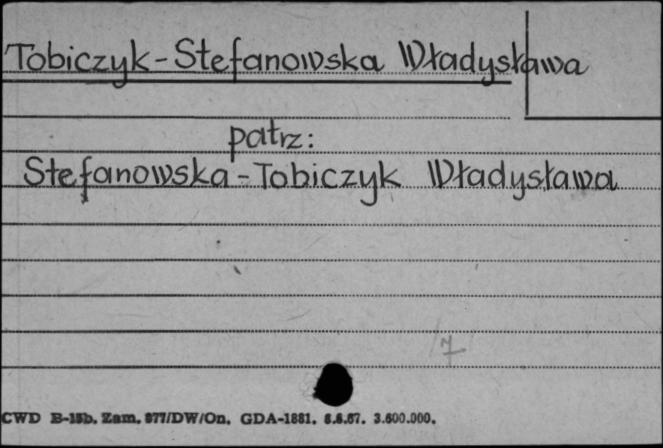 Tobiczyk-Stefanowska Władysława
patrz:
Stefanowska-Tobiczyk Władysława
7
CWD B-15b. Zam. 977/DW/On. GDA-1881. 6.6.67. 3.600.000.